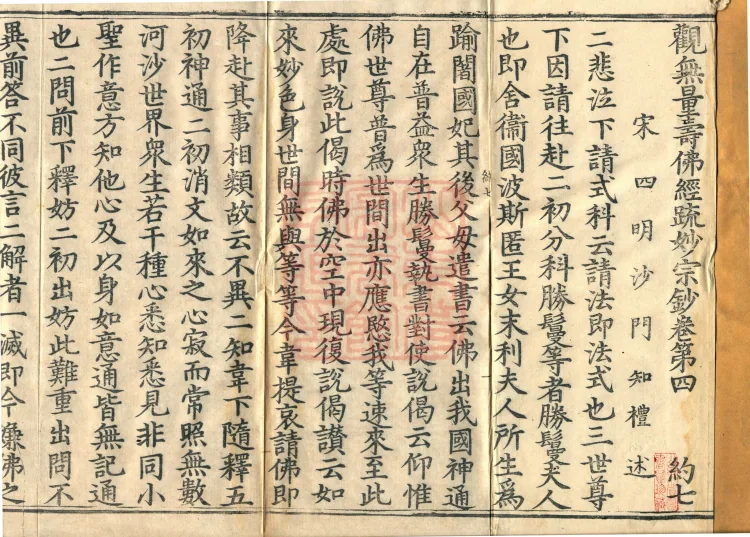 觀無量壽佛經疏妙宗鈔卷第四 約七
宋四明沙門知禮述
二悲泣下請式科云請法即法式也三世尊
下因請往赴二初分科勝鬘等者勝鬘夫人
也即舍衞國波斯匿王女末利夫人所生爲
約七
踰闍國妃其後父母遣書云佛出我國神通
自在普益衆生勝鬘執書對使說偈云仰惟
佛世尊普爲世間出亦應愍我等速來至此
處即說此偈時佛於空中現復說偈讚云如
來妙色身世間無與等等今韋提哀請佛即
降赴其事相類故云不異二知韋下隨釋五
初神通二初消文如來之心寂而常照無數
河沙世界衆生若干種心悉知悉見非同小
聖作意方知他心及以身如意通皆無記通
也二問前下釋妨二初出妨此難重出問不
異前答不同彼言二解者一滅即今嫌佛之